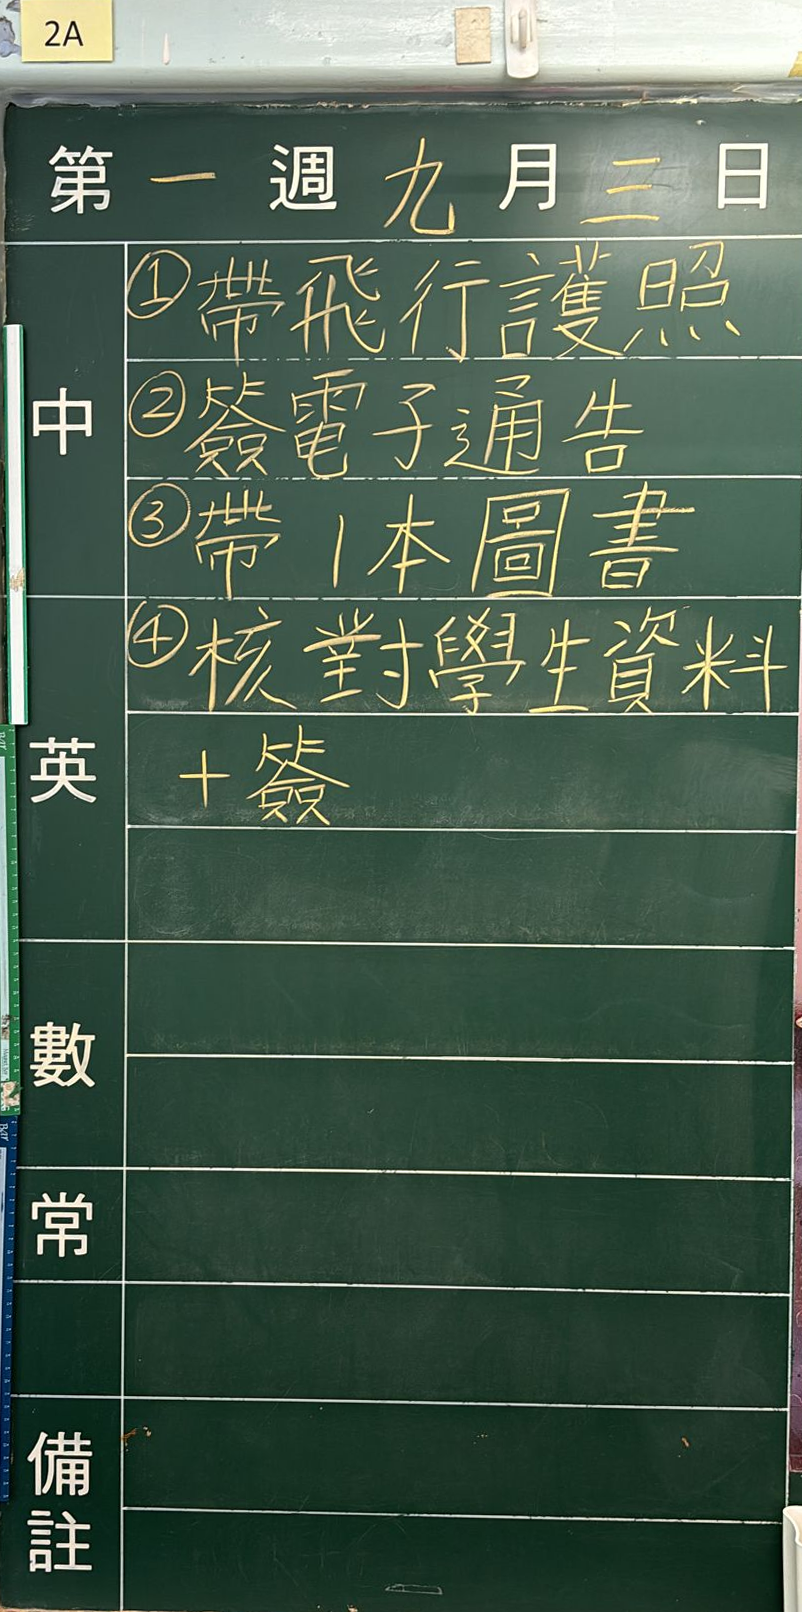 2A
第一週九月三日
中
①帶飛行護照
②簽電子通告
③帶1本圖書
英
④核對學生資料
+簽
數
常
備註